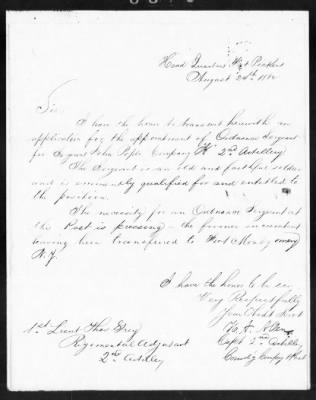 Head Quarters Fort
August 24th
Sir,
I have the honor to transmit herewith an
application for the appointment of Ordnance Sergeant
for Sergeant John Company "K" 2nd Artillery
The Sergeant is an old and faithful soldier
and is eminently qualified for and entitled to
the position.
The necessity for an Ordnance Sergeant at
this Post is pressing - the former incumbent
having been transferred to Fort Montgomery
N.Y.
I have the honor to be Sir
Very Respectfully
Your Obdt Servt
Capt 2nd Artillery
Comdg Company & Post
1st Lieut Thos Grey
Regimental Adjutant
2nd Artillery